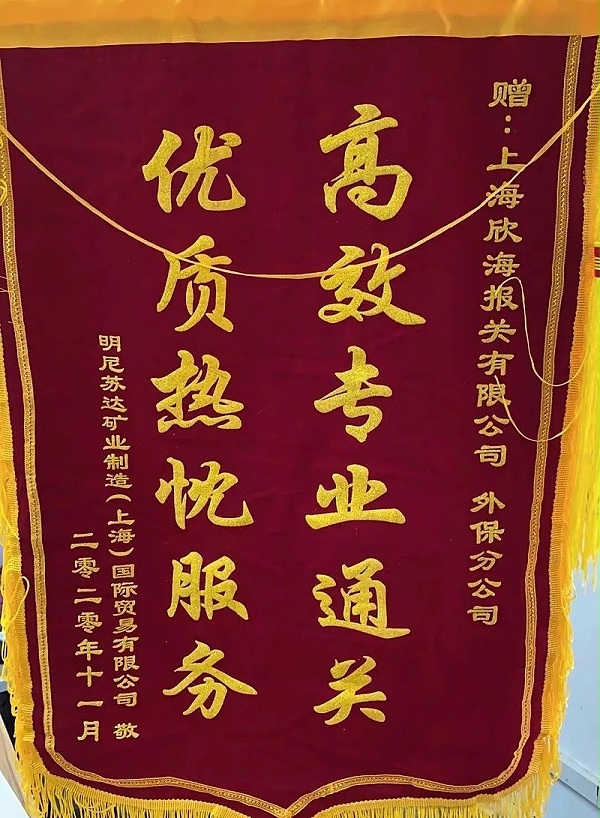 赠：上海欣海报关有限公司 外保分公司
高效专业通关
优质热忱服务
明尼苏达矿业制造（上海）国际贸易有限公司 敬
二零二零年十一月